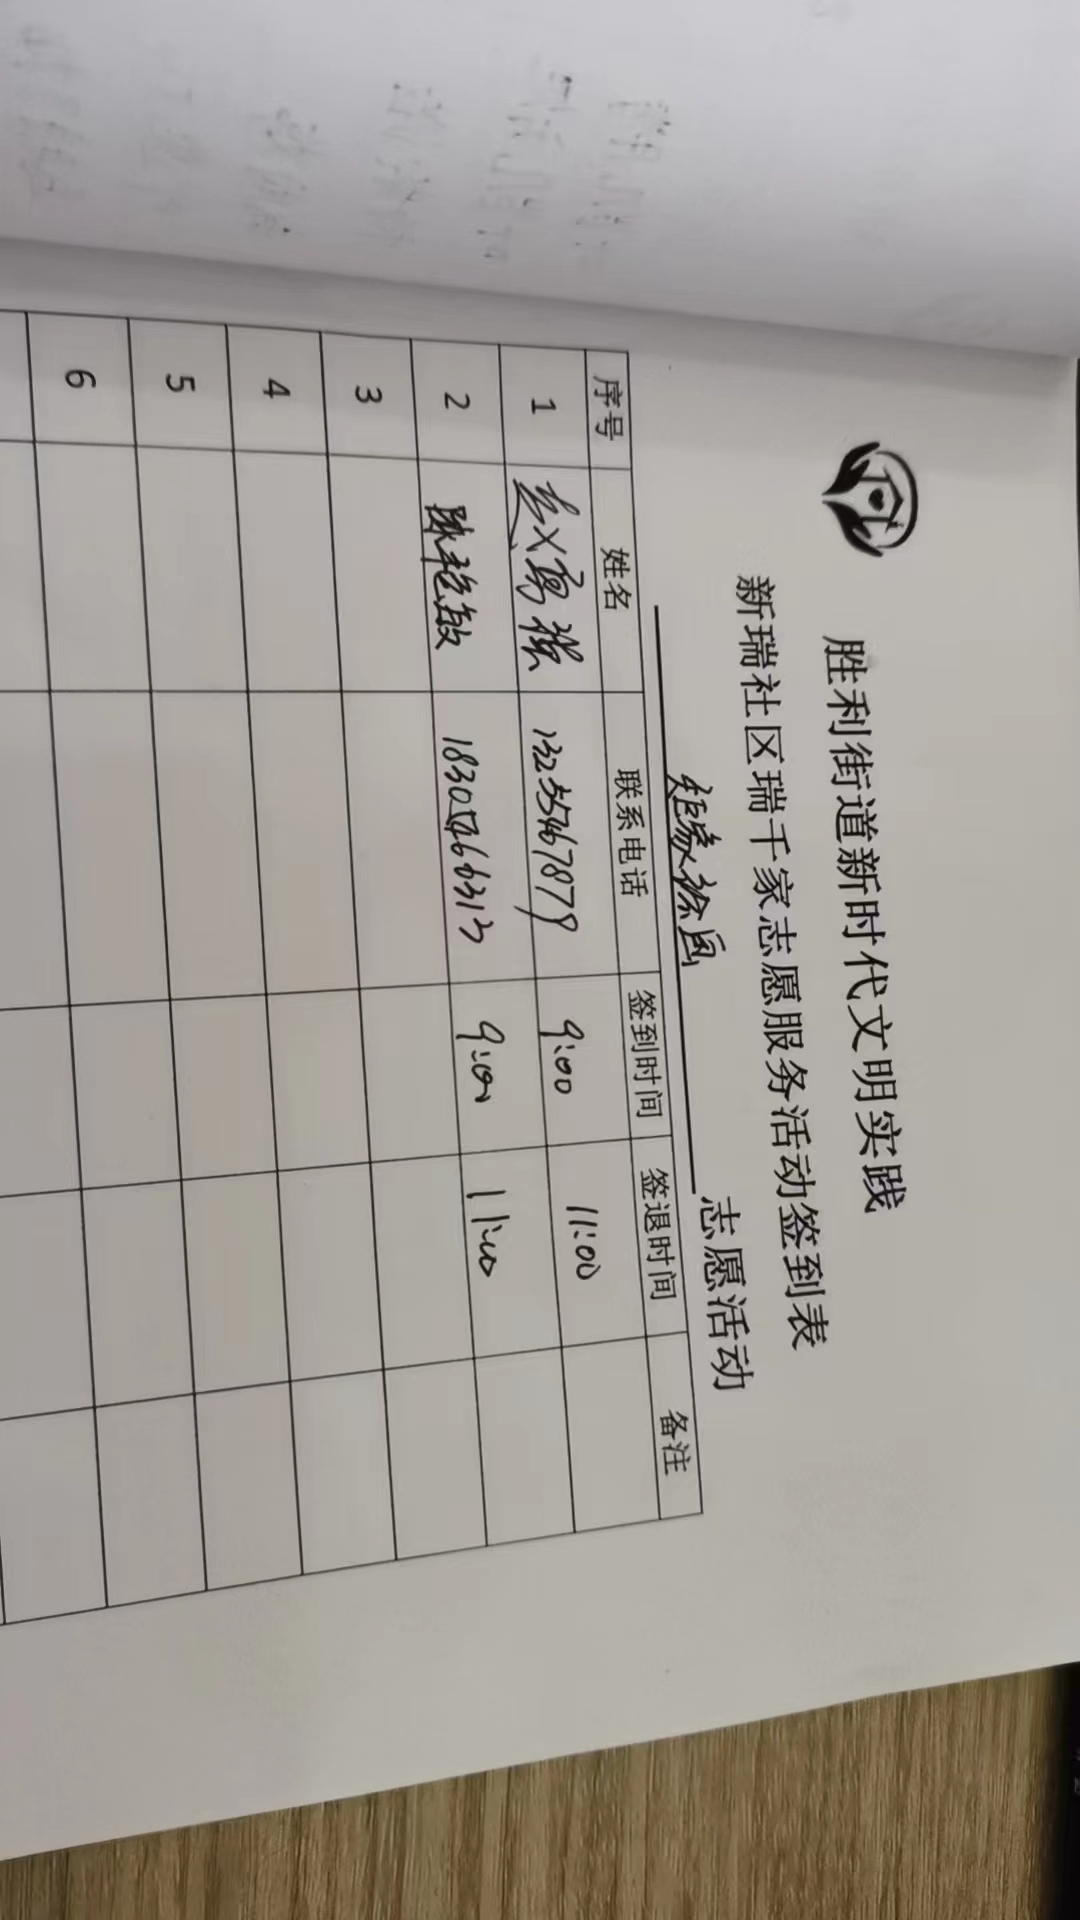 胜利街道新时代文明实践
新瑞社区瑞千家志愿服务活动签到表
志愿活动
序号 姓名 联系电话 签到时间 签退时间 备注
1 13255467879 9:00 11:00
2 陈艳敏 18305466313 9:00 11:00
3
4
5
6